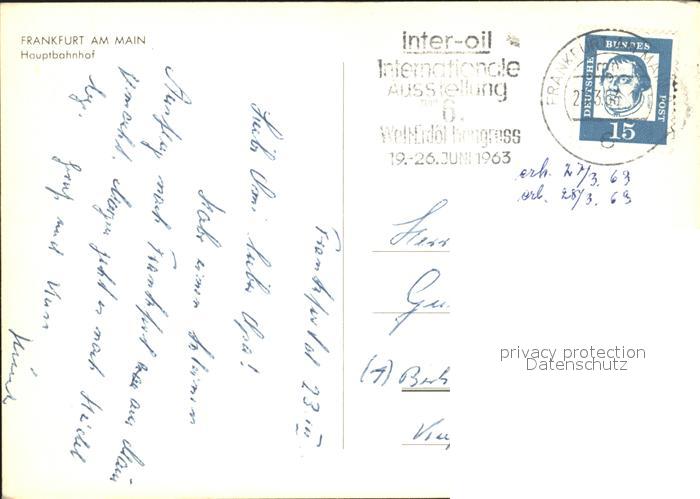 FRANKFURT AM MAIN
Hauptbahnhof
inter-oil
Internationale
Ausstellung
6.
Welt-Erdöl Kongress
19.-26. JUNI 1963
FRANKFURT
DEUTSCHE
BUNDES
POST
15
erh. 27/3. 63
erb. 28/3. 63
Frankfurt 23. III.
Liebe Omi, lieber Opa!
Habe einen schönen
Ausflug nach Frankfurt
gemacht. Morgen geht es nach Heidel
bg. Gruß und Kuss
Herr
(1) Berl
privacy protection
Datenschutz